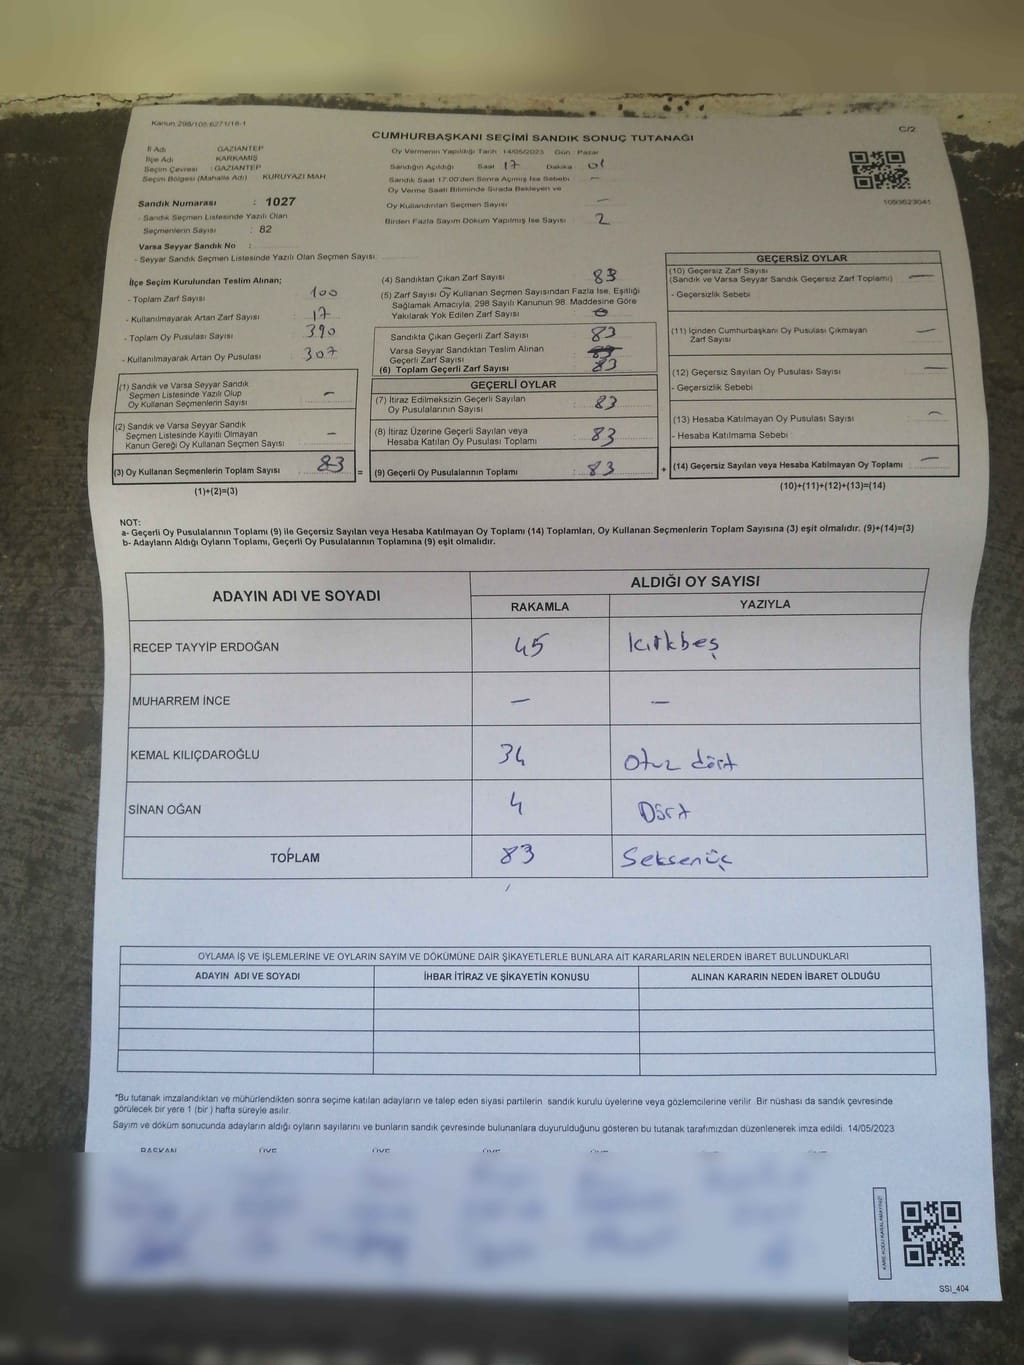 Kanun 298/105 6271/16-1
C/2
CUMHURBAŞKANI SEÇİMİ SANDIK SONUÇ TUTANAĞI
İl Adı GAZİANTEP
İlçe Adı KARKAMIŞ
Seçim Çevresi : GAZİANTEP
Seçim Bölgesi (Mahalle Adı) KURUYAZI MAH
Sandık Numarası : 1027
- Sandık Seçmen Listesinde Yazılı Olan
Seçmenlerin Sayısı : 82
Varsa Seyyar Sandık No :
- Seyyar Sandık Seçmen Listesinde Yazılı Olan Seçmen Sayısı
Oy Vermenin Yapıldığı Tarih : 14/05/2023 Gün : Pazar
Sandığın Açıldığı Saat 17 Dakika 01
Sandık Saat 17:00'den Sonra Açılmış İse Sebebi —
Oy Verme Saati Bitiminde Sırada Bekleyen ve
Oy Kullandırılan Seçmen Sayısı —
Birden Fazla Sayım Döküm Yapılmış İse Sayısı 2
1093623041
İlçe Seçim Kurulundan Teslim Alınan;
- Toplam Zarf Sayısı : 100
- Kullanılmayarak Artan Zarf Sayısı : 17
- Toplam Oy Pusulası Sayısı : 390
- Kullanılmayarak Artan Oy Pusulası : 307
(1) Sandık ve Varsa Seyyar Sandık
Seçmen Listesinde Yazılı Olup
Oy Kullanan Seçmenlerin Sayısı : —
(2) Sandık ve Varsa Seyyar Sandık
Seçmen Listesinde Kayıtlı Olmayan
Kanun Gereği Oy Kullanan Seçmen Sayısı : —
(3) Oy Kullanan Seçmenlerin Toplam Sayısı : 83
(1)+(2)=(3)
=
(4) Sandıktan Çıkan Zarf Sayısı 83
(5) Zarf Sayısı Oy Kullanan Seçmen Sayısından Fazla İse, Eşitliği
Sağlamak Amacıyla, 298 Sayılı Kanunun 98. Maddesine Göre
Yakılarak Yok Edilen Zarf Sayısı
Sandıkta Çıkan Geçerli Zarf Sayısı : 83
Varsa Seyyar Sandıktan Teslim Alınan
Geçerli Zarf Sayısı
(6) Toplam Geçerli Zarf Sayısı 83
GEÇERLİ OYLAR
(7) İtiraz Edilmeksizin Geçerli Sayılan
Oy Pusulalarının Sayısı : 83
(8) İtiraz Üzerine Geçerli Sayılan veya
Hesaba Katılan Oy Pusulası Toplamı : 83
(9) Geçerli Oy Pusulalarının Toplamı : 83
+
GEÇERSİZ OYLAR
(10) Geçersiz Zarf Sayısı
(Sandık ve Varsa Seyyar Sandık Geçersiz Zarf Toplamı) —
- Geçersizlik Sebebi
(11) İçinden Cumhurbaşkanı Oy Pusulası Çıkmayan
Zarf Sayısı —
(12) Geçersiz Sayılan Oy Pusulası Sayısı —
- Geçersizlik Sebebi
(13) Hesaba Katılmayan Oy Pusulası Sayısı —
- Hesaba Katılmama Sebebi
(14) Geçersiz Sayılan veya Hesaba Katılmayan Oy Toplamı —
(10)+(11)+(12)+(13)=(14)
NOT:
a- Geçerli Oy Pusulalarının Toplamı (9) ile Geçersiz Sayılan veya Hesaba Katılmayan Oy Toplamı (14) Toplamları, Oy Kullanan Seçmenlerin Toplam Sayısına (3) eşit olmalıdır. (9)+(14)=(3)
b- Adayların Aldığı Oyların Toplamı, Geçerli Oy Pusulalarının Toplamına (9) eşit olmalıdır.
ADAYIN ADI VE SOYADI
ALDIĞI OY SAYISI
RAKAMLA YAZIYLA
RECEP TAYYİP ERDOĞAN 45 kırkbeş
MUHARREM İNCE — —
KEMAL KILIÇDAROĞLU 34 Otuz dört
SİNAN OĞAN 4 Dört
TOPLAM 83 Seksenüç
OYLAMA İŞ VE İŞLEMLERİNE VE OYLARIN SAYIM VE DÖKÜMÜNE DAİR ŞİKAYETLERLE BUNLARA AİT KARARLARIN NELERDEN İBARET BULUNDUKLARI
ADAYIN ADI VE SOYADI İHBAR İTİRAZ VE ŞİKAYETİN KONUSU ALINAN KARARIN NEDEN İBARET OLDUĞU
*Bu tutanak imzalandıktan ve mühürlendikten sonra seçime katılan adayların ve talep eden siyasi partilerin sandık kurulu üyelerine veya gözlemcilerine verilir. Bir nüshası da sandık çevresinde
görülecek bir yere 1 (bir ) hafta süreyle asılır.
Sayım ve döküm sonucunda adayların aldığı oyların sayılarını ve bunların sandık çevresinde bulunanlara duyurulduğunu gösteren bu tutanak tarafımızdan düzenlenerek imza edildi. 14/05/2023
BAŞKAN ÜYE ÜYE ÜYE ÜYE
SSI_404